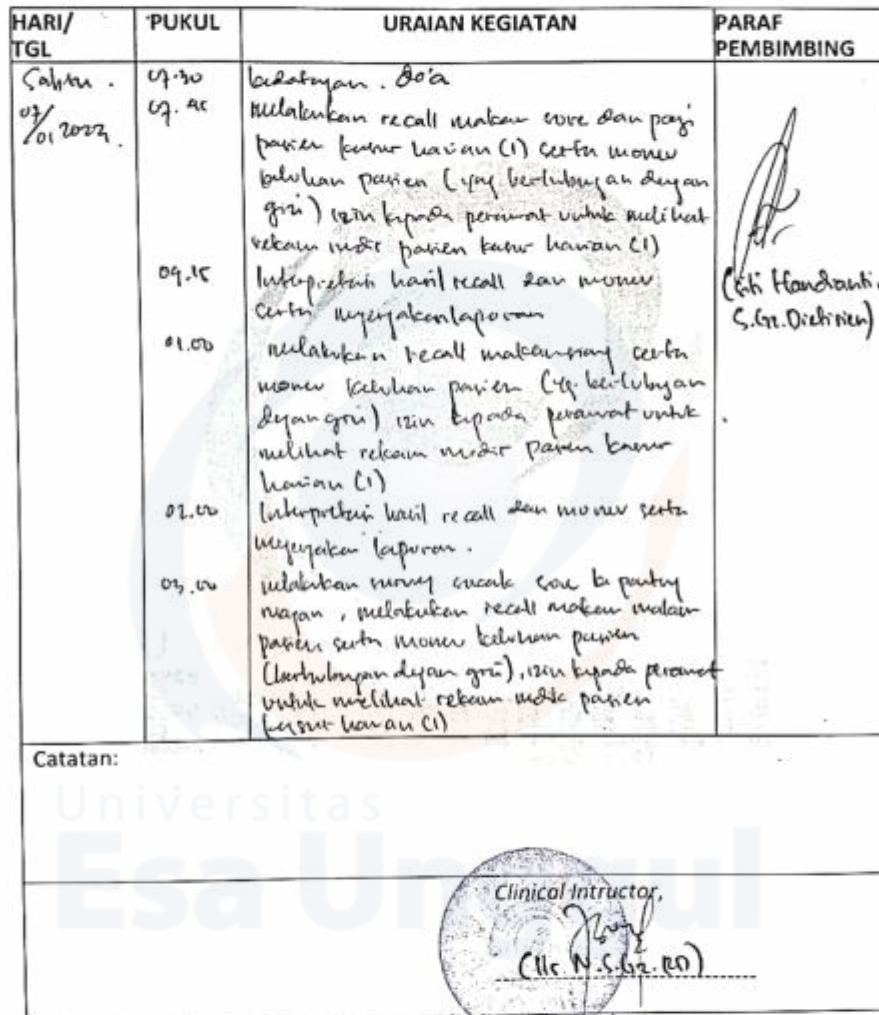 HARI/ TGL PUKUL URAIAN KEGIATAN PARAF PEMBIMBING
Sabtu. 07.30 kedatangan. Do'a
07/01 2023. 07.45 Melakukan recall makan sore dan pagi
pasien kasus harian (1) serta monev
keluhan pasien (yang berhubungan dengan
gizi) izin kepada perawat untuk melihat
rekam medis pasien kasus harian (1)
09.15 Interpretasi hasil recall dan monev
serta mengerjakan laporan
(Siti Handianti, S.Gz. Dietisien)
01.00 melakukan recall makan siang serta
monev keluhan pasien (yg berhubungan
dengan gizi) izin kepada perawat untuk
melihat rekam medis pasien kasus
harian (1)
02.00 Interpretasi hasil recall dan monev serta
mengerjakan laporan.
03.00 melakukan sore
makan, melakukan recall makan malam
pasien serta monev keluhan pasien
(berhubungan dengan gizi), izin kepada perawat
untuk melihat rekam medis pasien
kasus harian (1)
Catatan:
Universitas
Esa Unggul
Clinical Intructor,
N.S.Gz. RD)